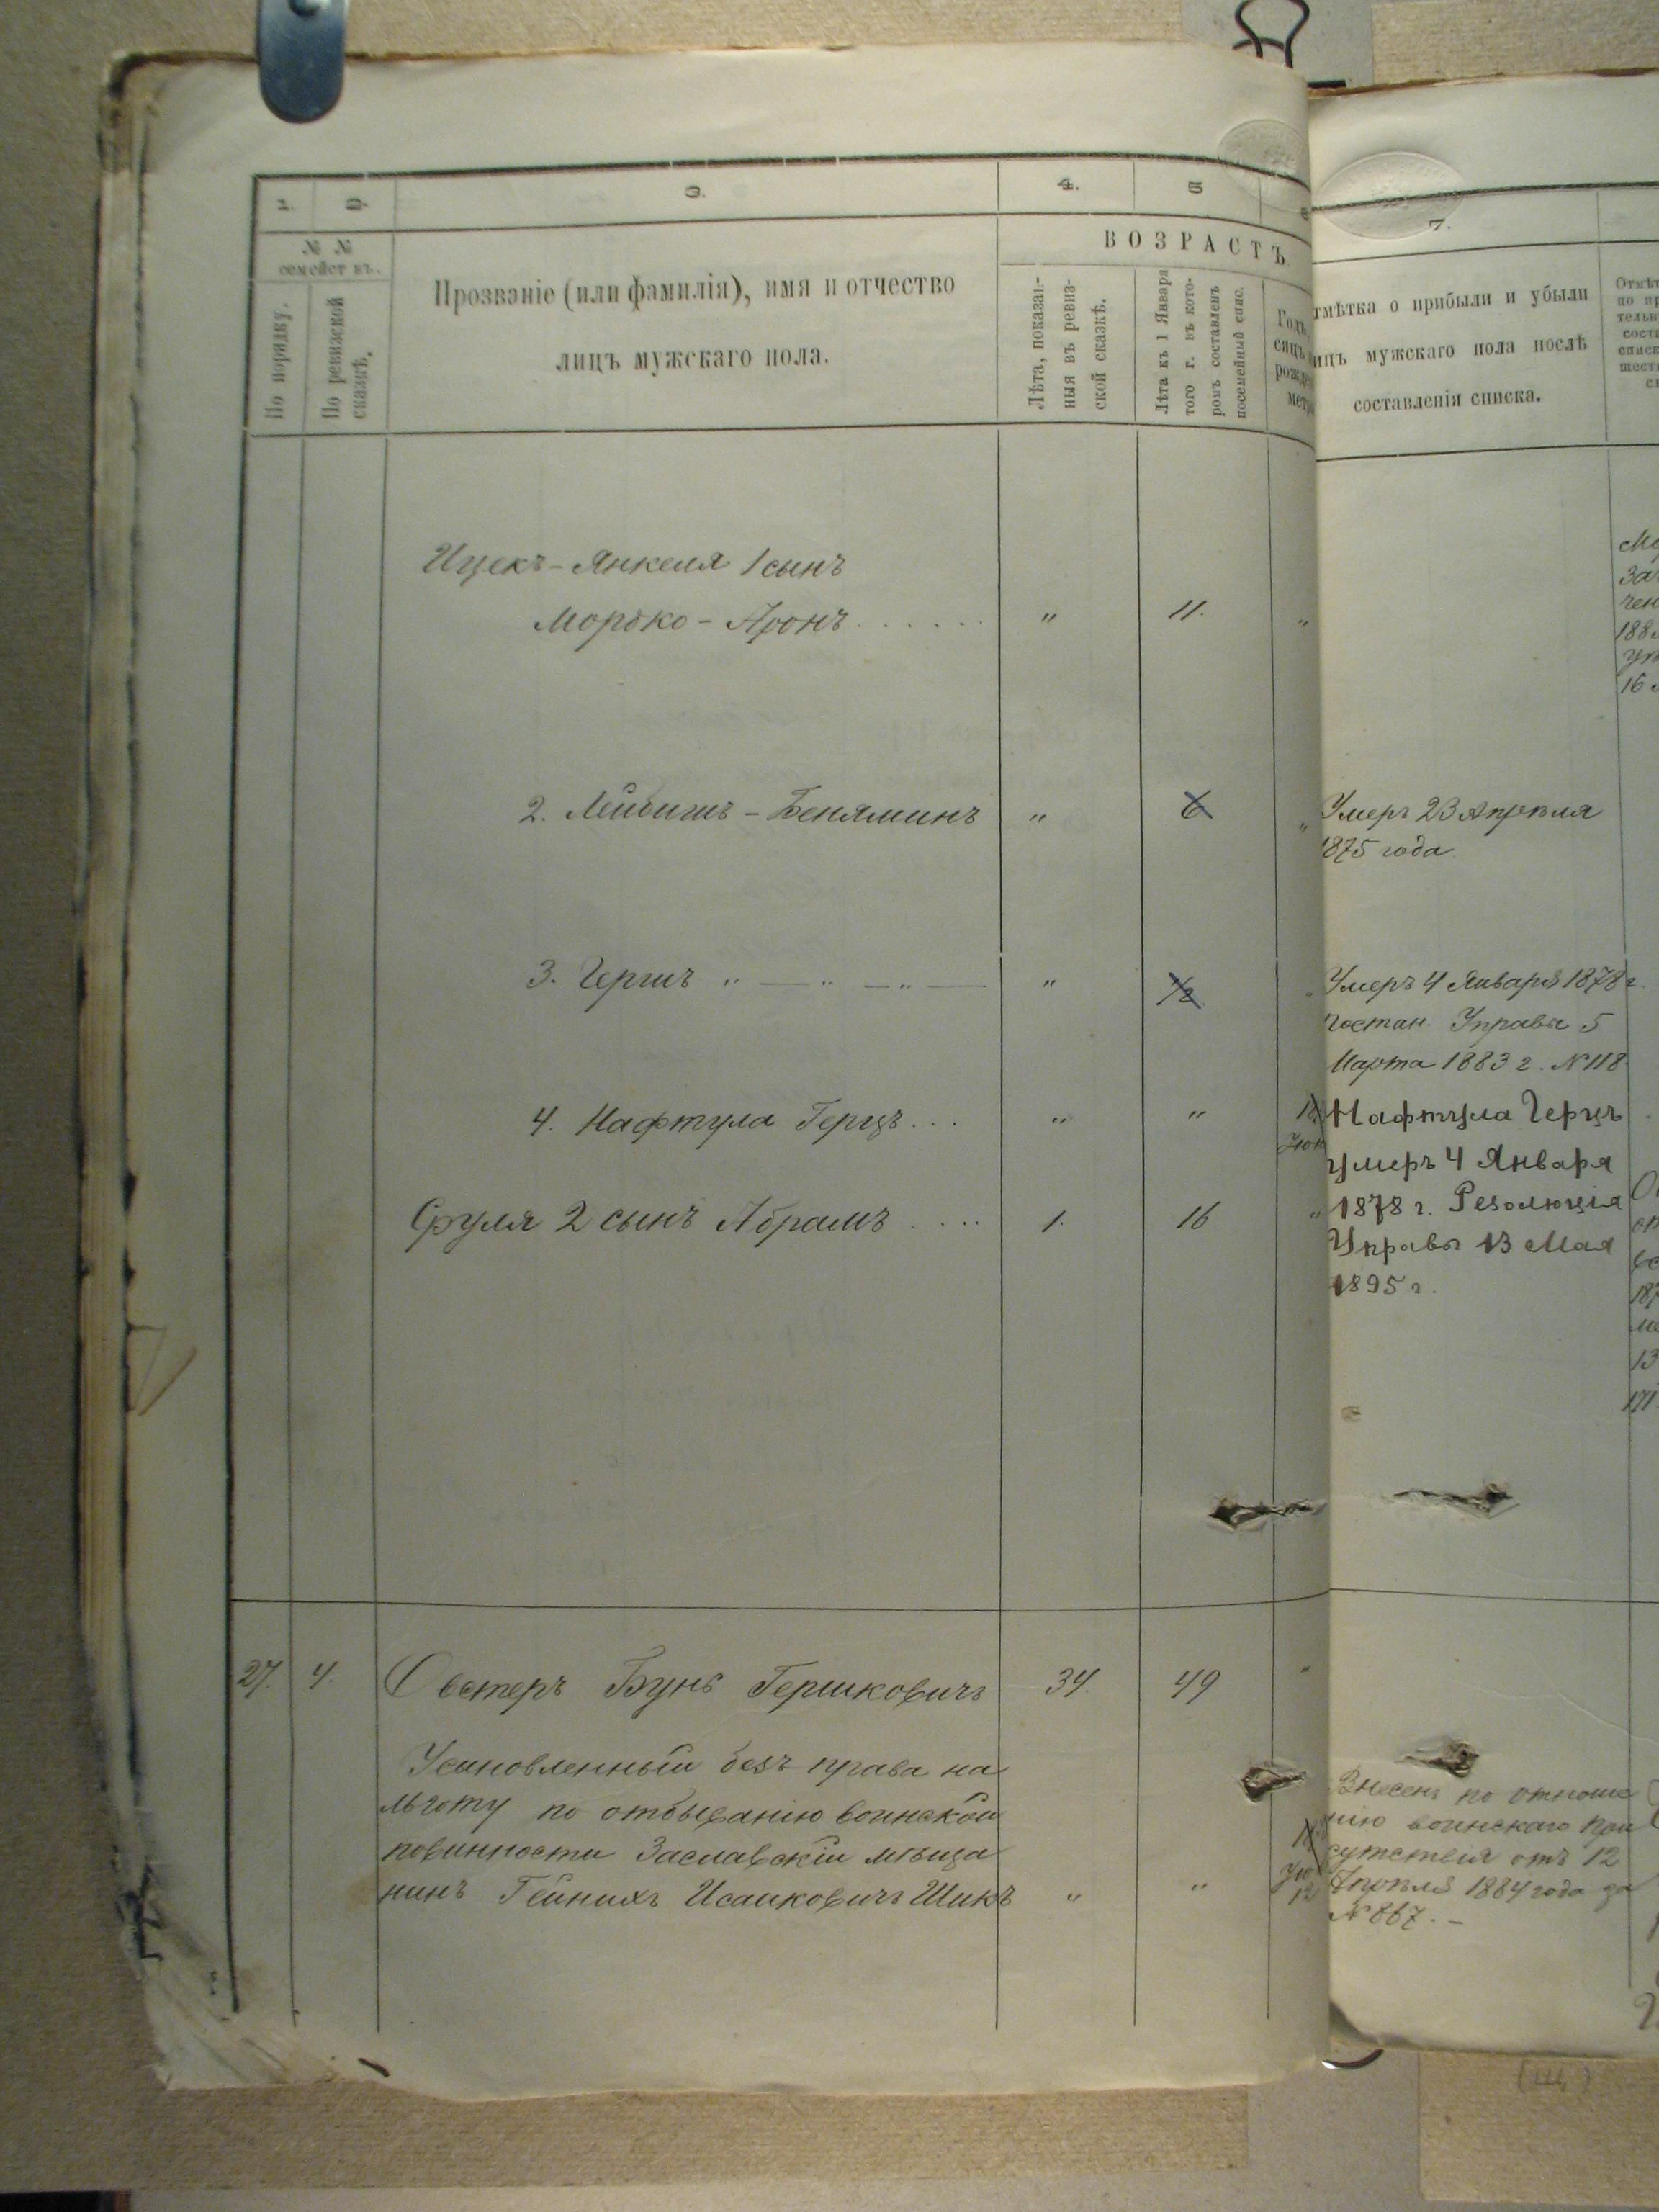 1. 2. 3. 4. 5
№ № семействъ.
По порядку.
По ревизской сказкѣ.
Прозваніе (или фамилія), имя и отчество
лицъ мужскаго пола.
ВОЗРАСТЪ
Лѣта, показан-
ныя въ ревиз-
ской сказкѣ.
Лѣта къ 1 Января
того г. въ кото-
ромъ составленъ
посемейный спис.
7.
тмѣтка о прибыли и убыли
ицъ мужскаго пола послѣ
составленія списка.
Ицекъ-Янкеля 1 сынъ
Мордко-Аронъ . . . . . . " 11. "
2. Лейбишъ-Беняминъ " 6 "
Умеръ 23 Апрѣля
1875 года
3. Гершъ " — " — " — " 1/2 "
Умеръ 4 Января 1878 г.
Постан. Управы 5
Марта 1883 г. № 118.
4. Нафтула Герцъ . . . " "
Нафтула Герцъ
умеръ 4 Января
1878 г. Резолюція
Управы 13 Мая
1895 г.
Сруля 2 сынъ Абрамъ . . . . 1. 16 "
27. 4. Состеръ Бунь Гершковичъ 34. 49 "
Усыновленный безъ права на
льготу по отбыванію воинской
повинности Заславскій мѣща
нинъ Гейнихъ Исааковичъ Шикъ " "
Внесенъ по отноше
нію воинскаго при
сутствія отъ 12
Апрѣля 1884 года за
№ 867. —